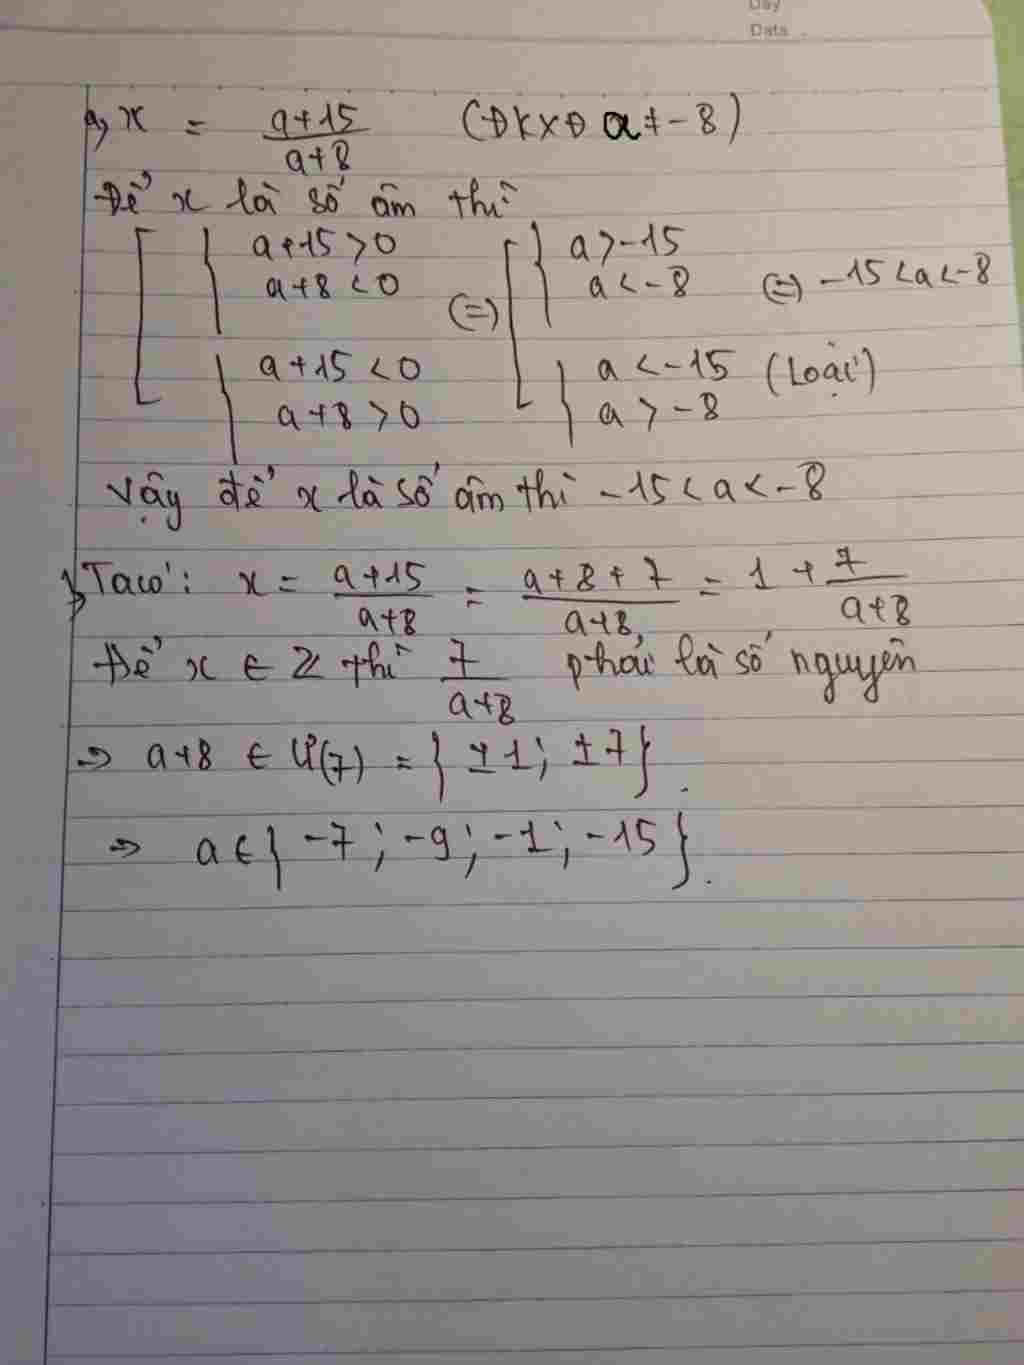 Day
Date
a, x = \frac{a+15}{a+8} (ĐKXĐ a ≠ -8)
Để x là số âm thì
[ { a+15 > 0 (=) [ { a > -15 (=) -15 < a < -8
a+8 < 0 a < -8
{ a+15 < 0 { a < -15 (Loại)
a+8 > 0 a > -8
Vậy để x là số âm thì -15 < a < -8
Ta có: x = \frac{a+15}{a+8} = \frac{a+8+7}{a+8} = 1 + \frac{7}{a+8}
Để x ∈ Z thì \frac{7}{a+8} phải là số nguyên
=> a+8 ∈ Ư(7) = { ±1; ±7}.
=> a ∈ { -7; -9; -1; -15}.